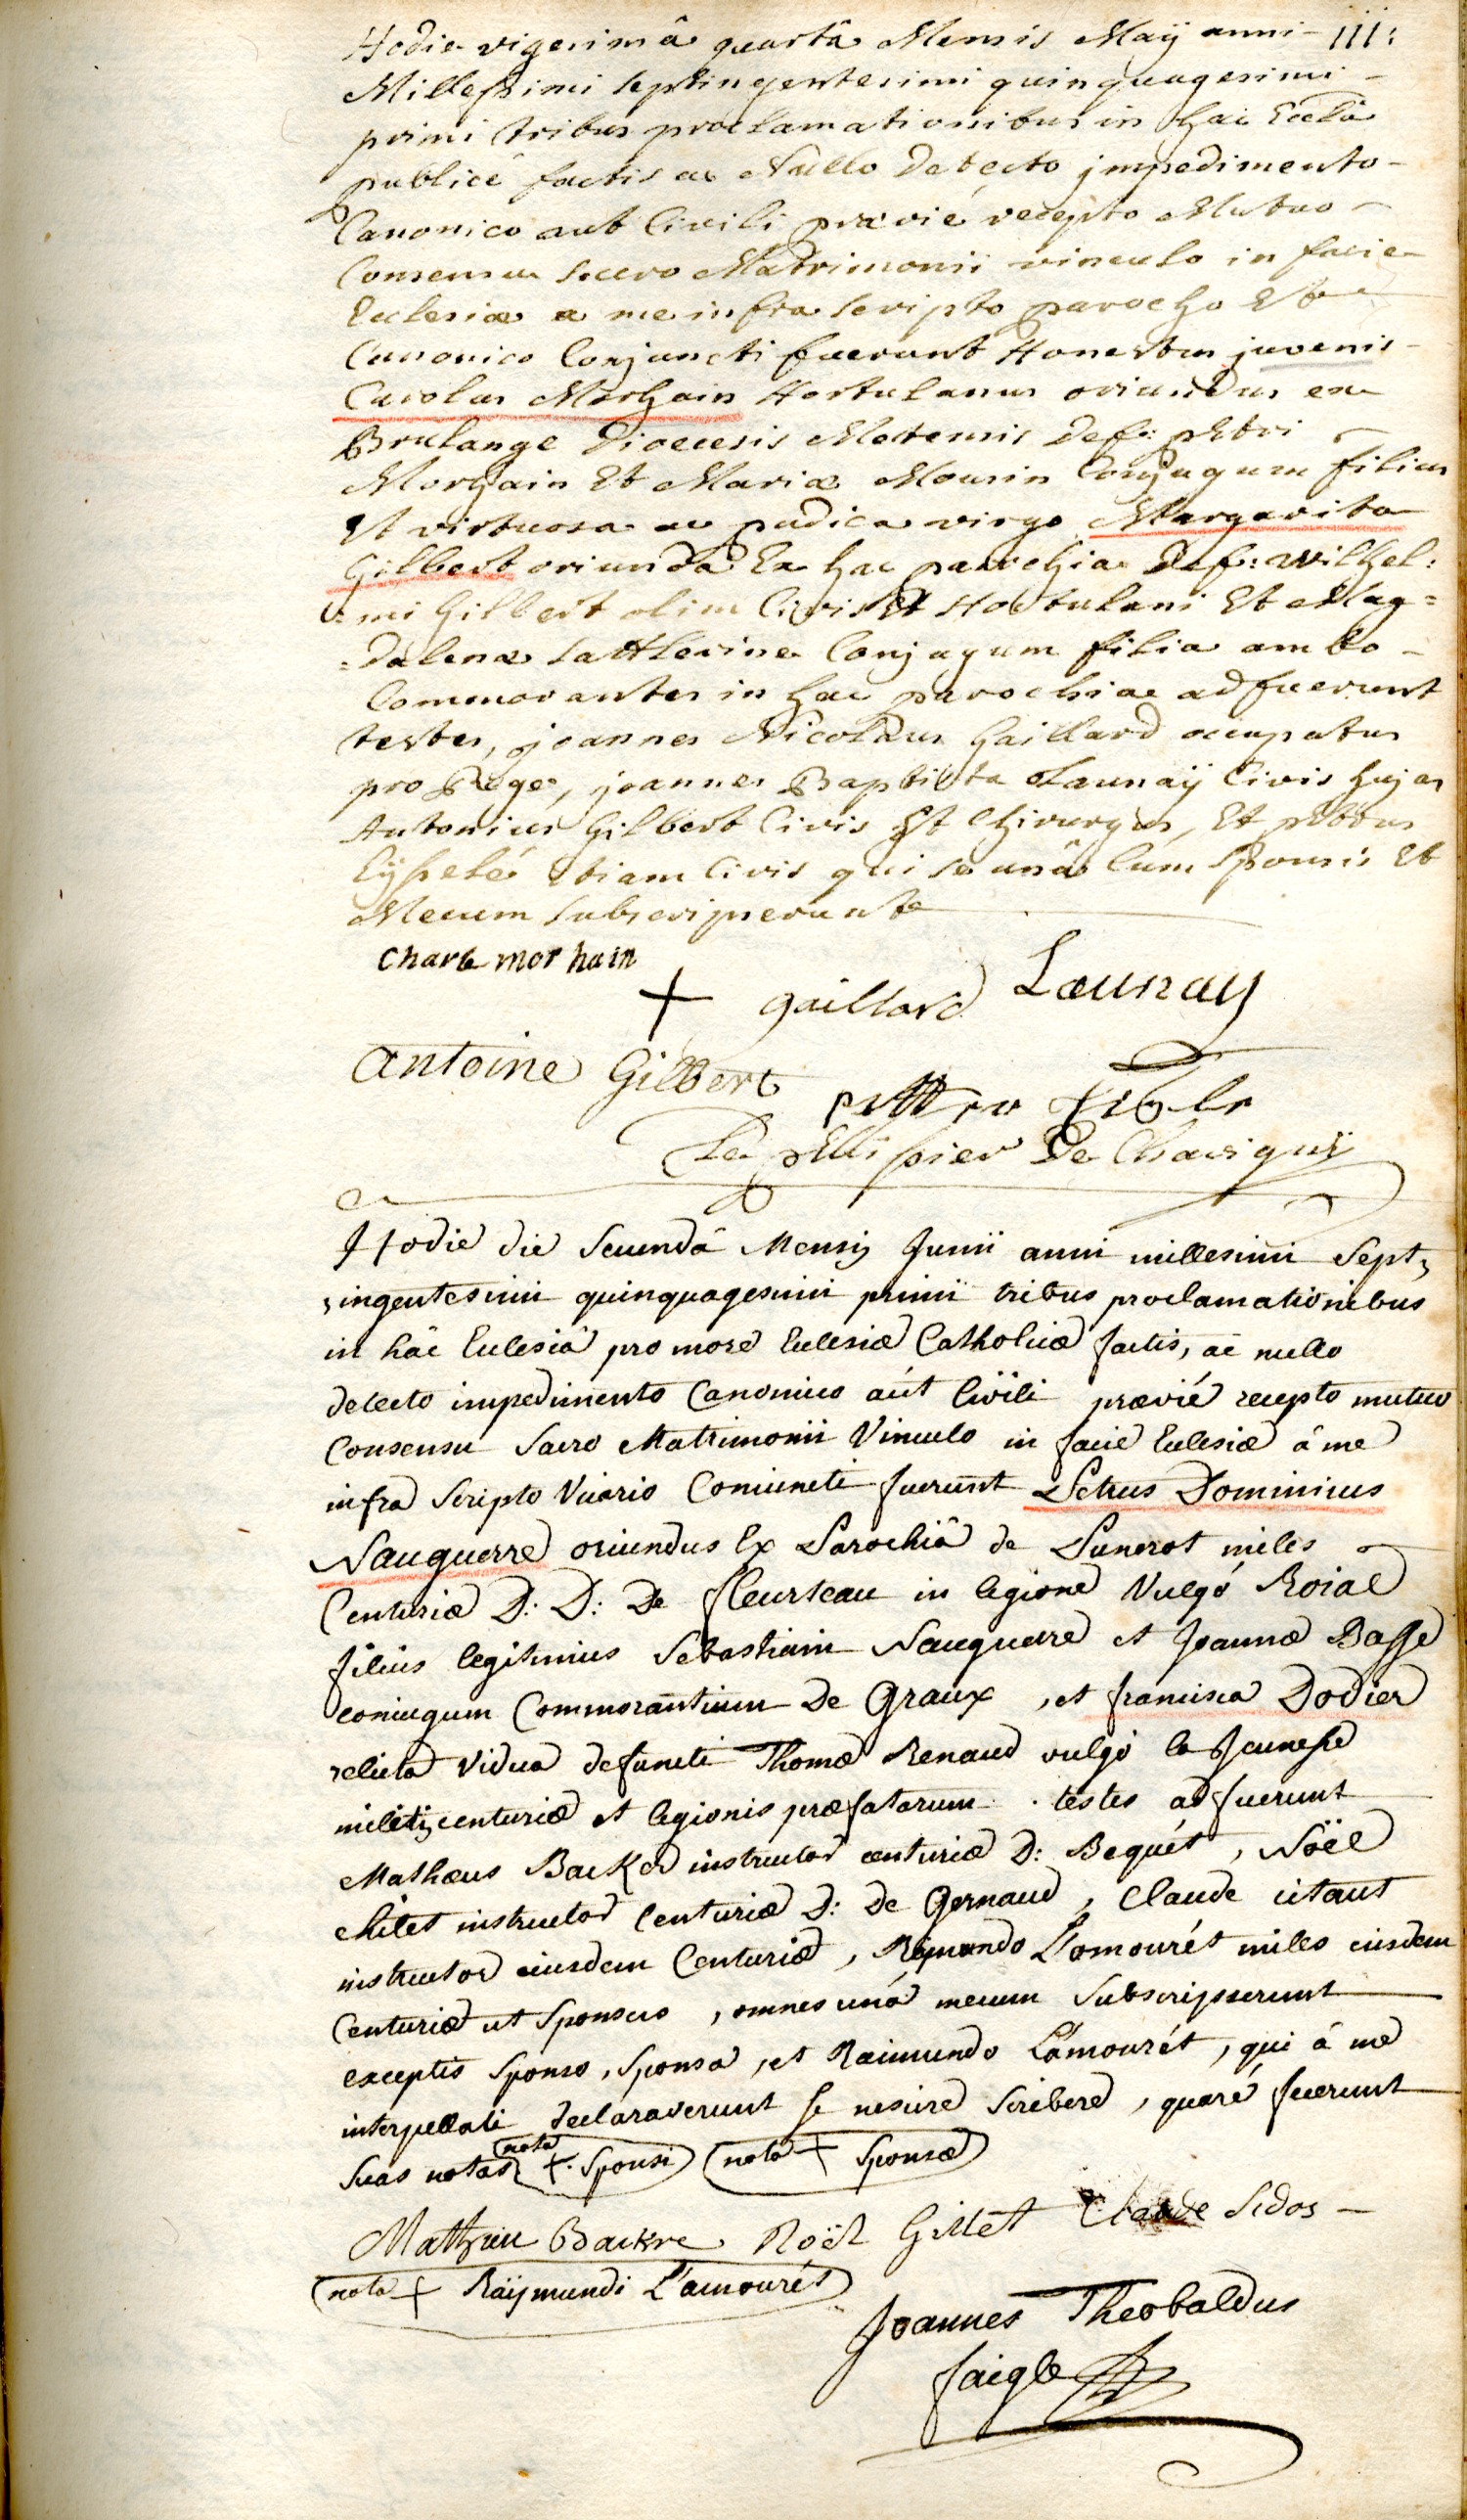 Hodie vigesimâ quartâ Mensis Maÿ anni – 111:
Millessimi septingentesimi quinquagesimi –
primi tribus proclamationibus in hac Eccla
publicé factis ac Nullo Detecto jmpedimento –
Canonico aut Civili prævié recepto Mutuo –
Consensu sacro Matrimonii vinculo in facie
Ecclesiæ a me infra scripto parocho Et
Canonico Conjuncti fuerunt Honestus juvenis –
Carolus Morhain Hortulanus oriundus ex
Brulange Dioecesis Metensis Def: petri
Morhain Et Mariæ Mousin Conjugum filius
Et virtuosa ac pudica virgo Margarita
Gilbert oriunda Ex hac parochia Def: wilhel:
:mi Gilbert olim Civis Et Hortulani Et Mag=
=dalenæ sattlerine Conjugum filia ambo –
Commorantes in hac parochia adfuerunt
testes, joannes Nicolaus Gaillard occupatus
pro Rege, joannes Baptista Launaÿ Civis hujas
Antonius Gilbert Civis Et Chirurgus, Et petrus
Etiam Civis qui se unâ Cum Sponsis Et
Mecum subscripserunt
Charle mor hain
+ gaillard Launay
antoine Gilbert
Le pellissier De Chavignÿ
Hodie die secundâ Mensis Junii anni millesimi Sept,
,ingentesimi quinquagesimi primi tribus proclamationibus
in hâc Eclesiâ pro more Eclesiæ Catholicæ factis, ac nullo
detecto impedimento Canonico aút Civili prævié recepto mutuo
Consensu Sacro Matrimonii Vinculo in facie Eclesiæ â me
infra Scripto Vicario Coniuncti fuerunt Petrus Dominicus
Nauguerre oriundus Ex Parochiâ de Punerot miles
Centuriæ D: D: De fleurteau in legione Vulgó Roial
filius legitimus Sebastiani Nauguerre et Joannæ Basse
coniugum Commorantium De Graux, et francisca Dodier
relicta Vidua defuncti Thomæ Renaud vulgò la Jeunesse
militis centuriæ et legionis præfatarum . testes adfuerunt
Mathæus Backer instructor centuriæ D: Bequét, Nöél
chilet instructor Centuriæ D: De Gernaud, Claude citaut
instructor eiusdem Centuriæ, Rÿmundo L'amourét miles eiusdem
Centuriæ ut Sponsus, omnes unâ mecum Subscripserunt
exceptis Sponso, Sponsa, et Raimundo L'amourét, qui â me
interpellati declaraverunt se nescire Scribere, quaré fecerunt
Suas notas nota +. Sponsi nota + Sponsæ
Mathieu Backre Noël Gillet Claude Sidos –
nota + Raÿmundi L'amourét
Joannes Theobaldus
faigle